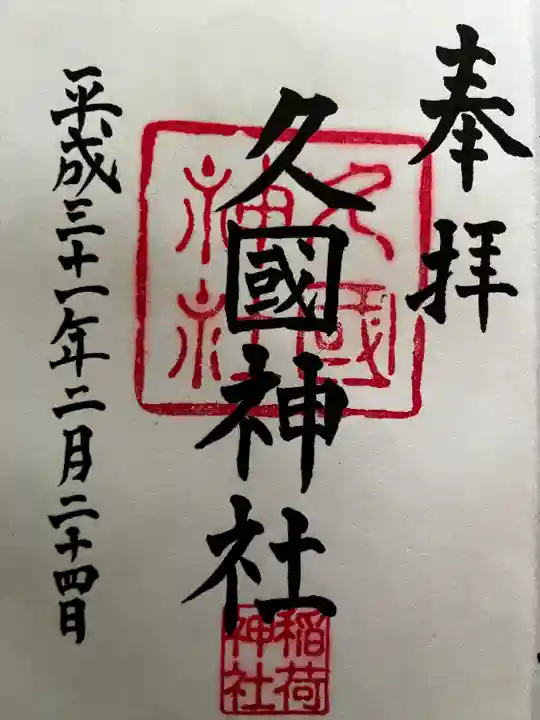 奉拝
久國神社
久國神社
稲荷神社
平成三十一年二月二十四日